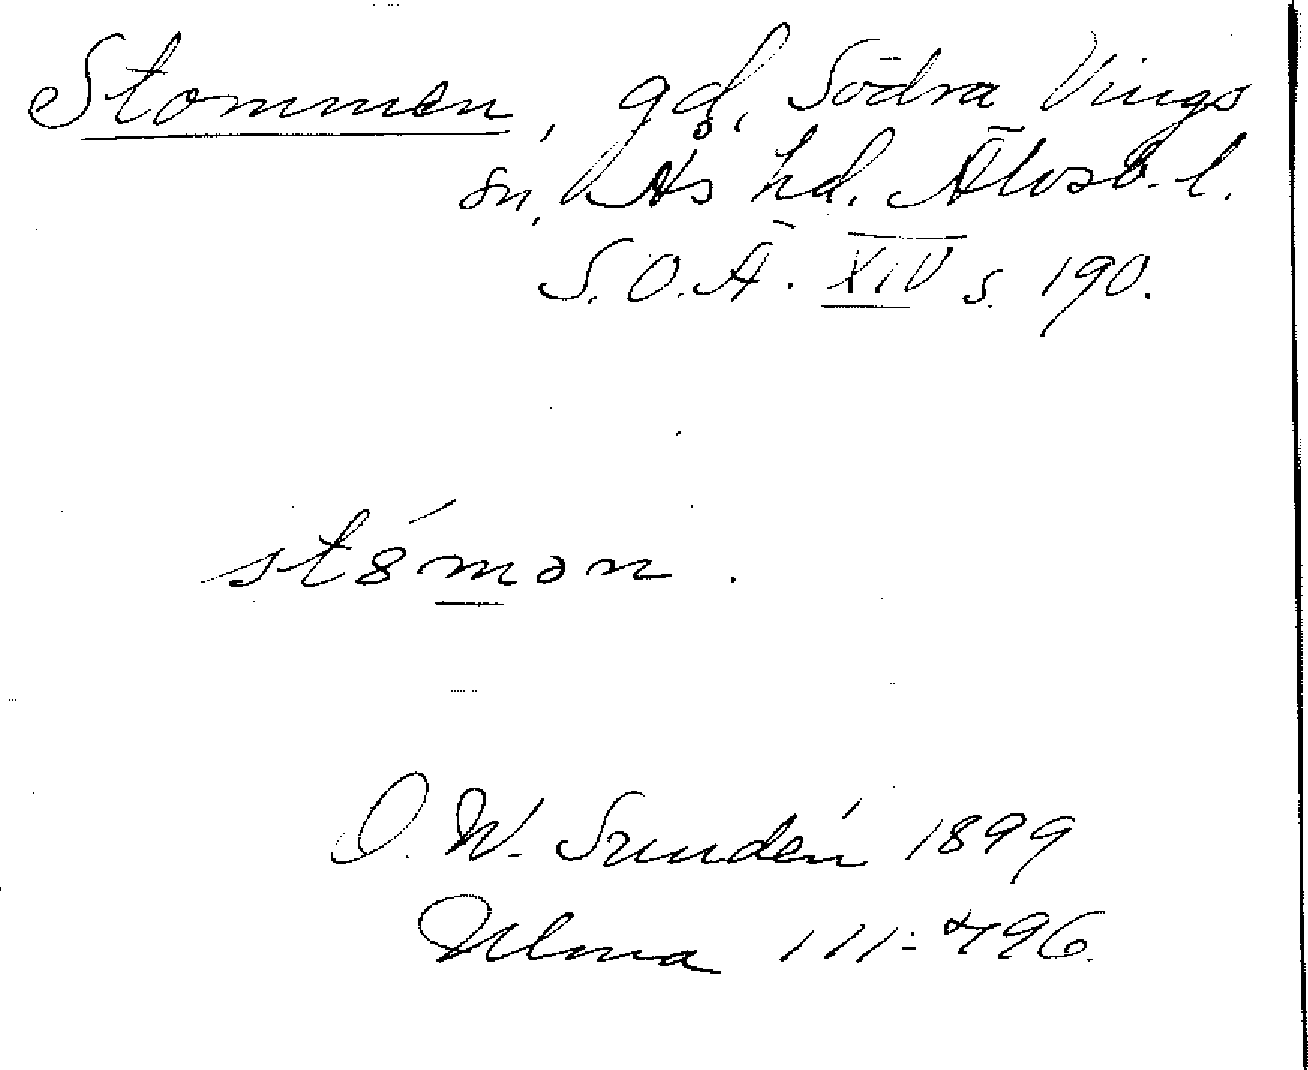 Stommen, gd, Södra Vings
sn, Ås hd. Älvsb. l.
S.O.Ä. XIV s. 190.
stȣ́mən.
D. W. Sundén 1899
Ulma 111:496.